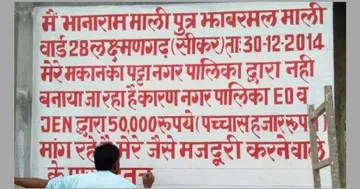 मैं भानाराम माली पुत्र झाबरमल माली
वार्ड 28 लक्ष्मणगढ़ (सीकर) ताः 30-12-2014
मेरे मकान का पट्टा नगर पालिका द्वारा नही
बनाया जा रहा है कारण नगर पालिका EO व
JEN द्वारा 50,000 रूपये (पच्चास हजार रूप
मांग रहे है मेरे जैसे मजदूरी करने वाले
के पास